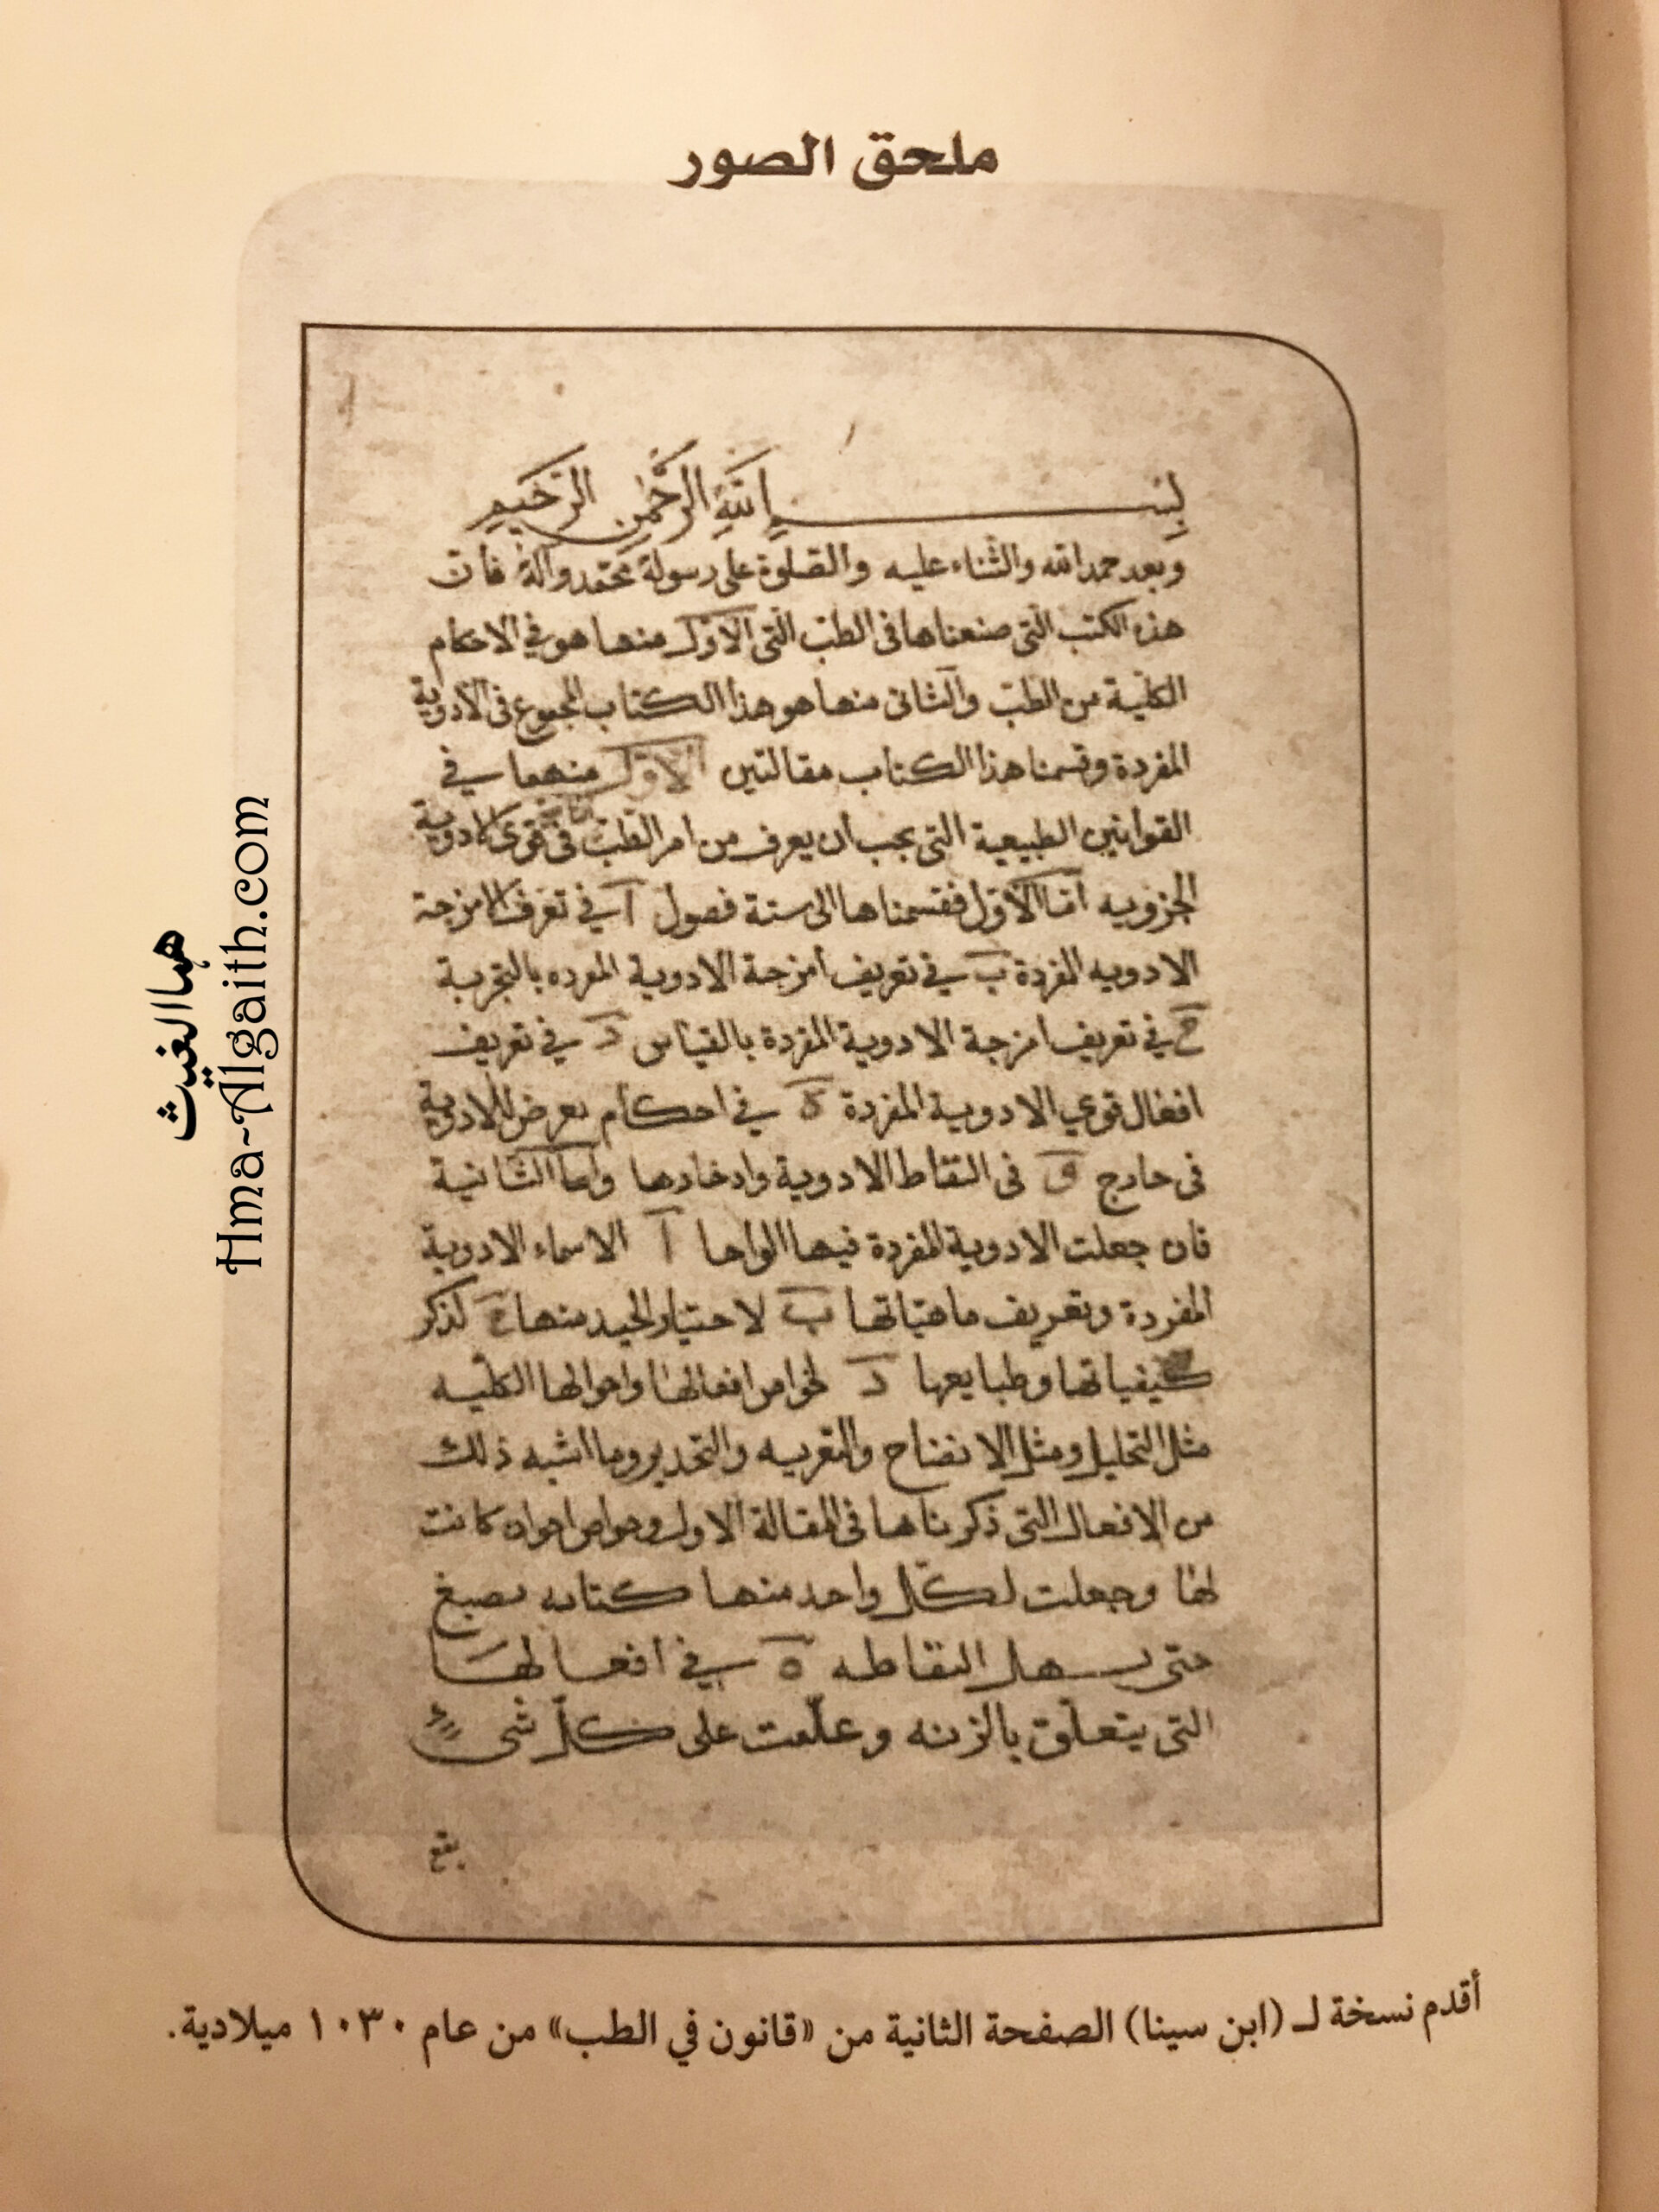 ملحق الصور
بِسْمِ اللهِ الرَّحْمٰنِ الرَّحيمِ
وبعد حمد الله والثناء عليه والصلوة على رسولة محمد وآلة فان
هذه الكتب التى صنعناها فى الطب التى الاول منها هو في الاحكام
الكلية من الطب والثانى منها هو هذا الكتاب المجموع فى الادوية
المفردة وقسمنا هذا الكتاب مقالتين الاول منهما في
القوانين الطبيعية التى يجب ان يعرف من امر الطب فى قوى الادوية
الجزويه اما الاول فقسمناها الى ستة فصول آ في تعرف الامزجة
الادويه المفردة ب في تعريف أمزجة الادوية المفرده بالتجربة
ج في تعريف امزجة الادوية المفردة بالقياس د في تعريف
افعال قوي الادوية المفردة ه في احكام يعرض للادوية
فى خارج و فى التقاط الادوية وادخارها واما الثانية
فان جعلت الادوية المفردة فيها الواحا آ الاسماء الادوية
المفردة وتعريف ماهياتها ب لاختيار الجيد منها ج لذكر
كيفياتها وطبايعها د لخواص افعالها واحوالها الكليه
مثل التحليل ومثل الانضاج والتغريه والتخدير وما اشبه ذلك
من الافعال التى ذكرناها فى المقالة الاول وخواص كانت
لها وجعلت لكل واحد منها كتابه بصبغ
حتى يسهل التقاطه ه في افعالها
التى يتعلق بالزينه وعلمت على كل شى
هيا الغيث
Hma-Algaith.com
أقدم نسخة لـ (ابن سينا) الصفحة الثانية من «قانون في الطب» من عام ١٠٣٠ ميلادية.